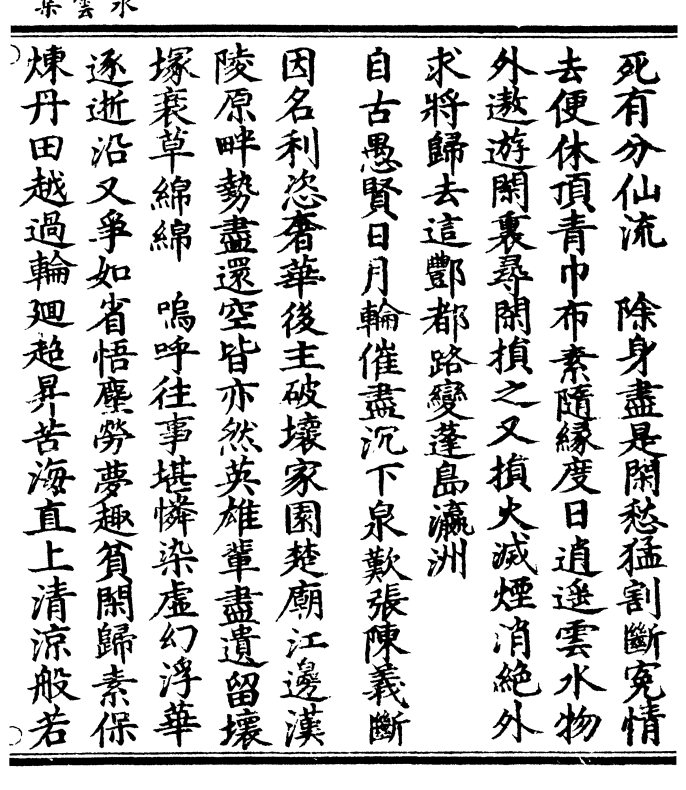 水雲集
死有分仙流　除身盡是閑愁猛割斷寃情
去便休頂青巾布素隨緣度日逍遥雲水物
外遨遊閑裏尋閑損之又損火滅煙消絕外
求將歸去這酆都路變蓬島瀛洲
自古愚賢日月輪催盡沉下泉歎張陳義斷
因名利恣奢華後主破壞家園楚廟江邊漢
陵原畔勢盡還空皆亦然英雄輩盡遺留壞
塚衰草綿綿　嗚呼往事堪憐染虛幻浮華
逐逝沿又爭如省悟塵勞夢趣貧閑歸素保
煉丹田越過輪廻超昇苦海直上清涼般若